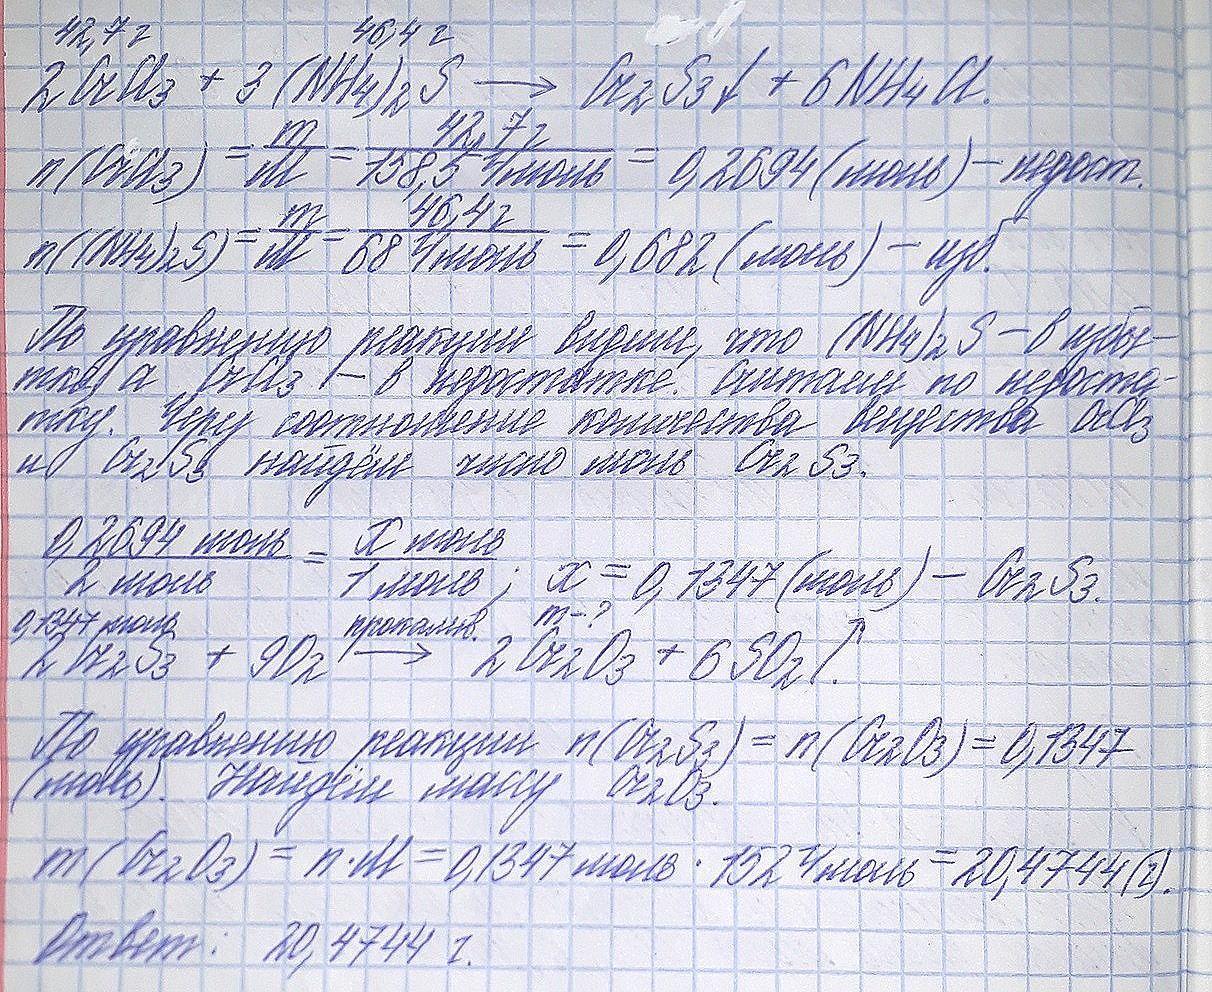 42,7 г 46,4 г
2CrCl₃ + 3(NH₄)₂S → Cr₂S₃↓ + 6NH₄Cl.
n(CrCl₃) = m/M = 42,7 г/158,5 г/моль = 0,2694 (моль) – недост.
n((NH₄)₂S) = m/M = 46,4 г/68 г/моль = 0,682 (моль) – изб.
По уравнению реакции видим, что (NH₄)₂S – в избы-
тке, а CrCl₃ – в недостатке. Считаем по недоста-
тку. Через соотношение количества вещества CrCl₃
и Cr₂S₃ найдём число моль Cr₂S₃.
0,2694 моль/2 моль = x моль/1 моль; x = 0,1347 (моль) – Cr₂S₃.
0,1347 моль прокалив. m-?
2Cr₂S₃ + 9O₂ → 2Cr₂O₃ + 6SO₂↑.
По уравнению реакции n(Cr₂S₃) = n(Cr₂O₃) = 0,1347
(моль). Найдём массу Cr₂O₃.
m(Cr₂O₃) = n·M = 0,1347 моль · 152 г/моль = 20,4744 (г).
Ответ: 20,4744 г.